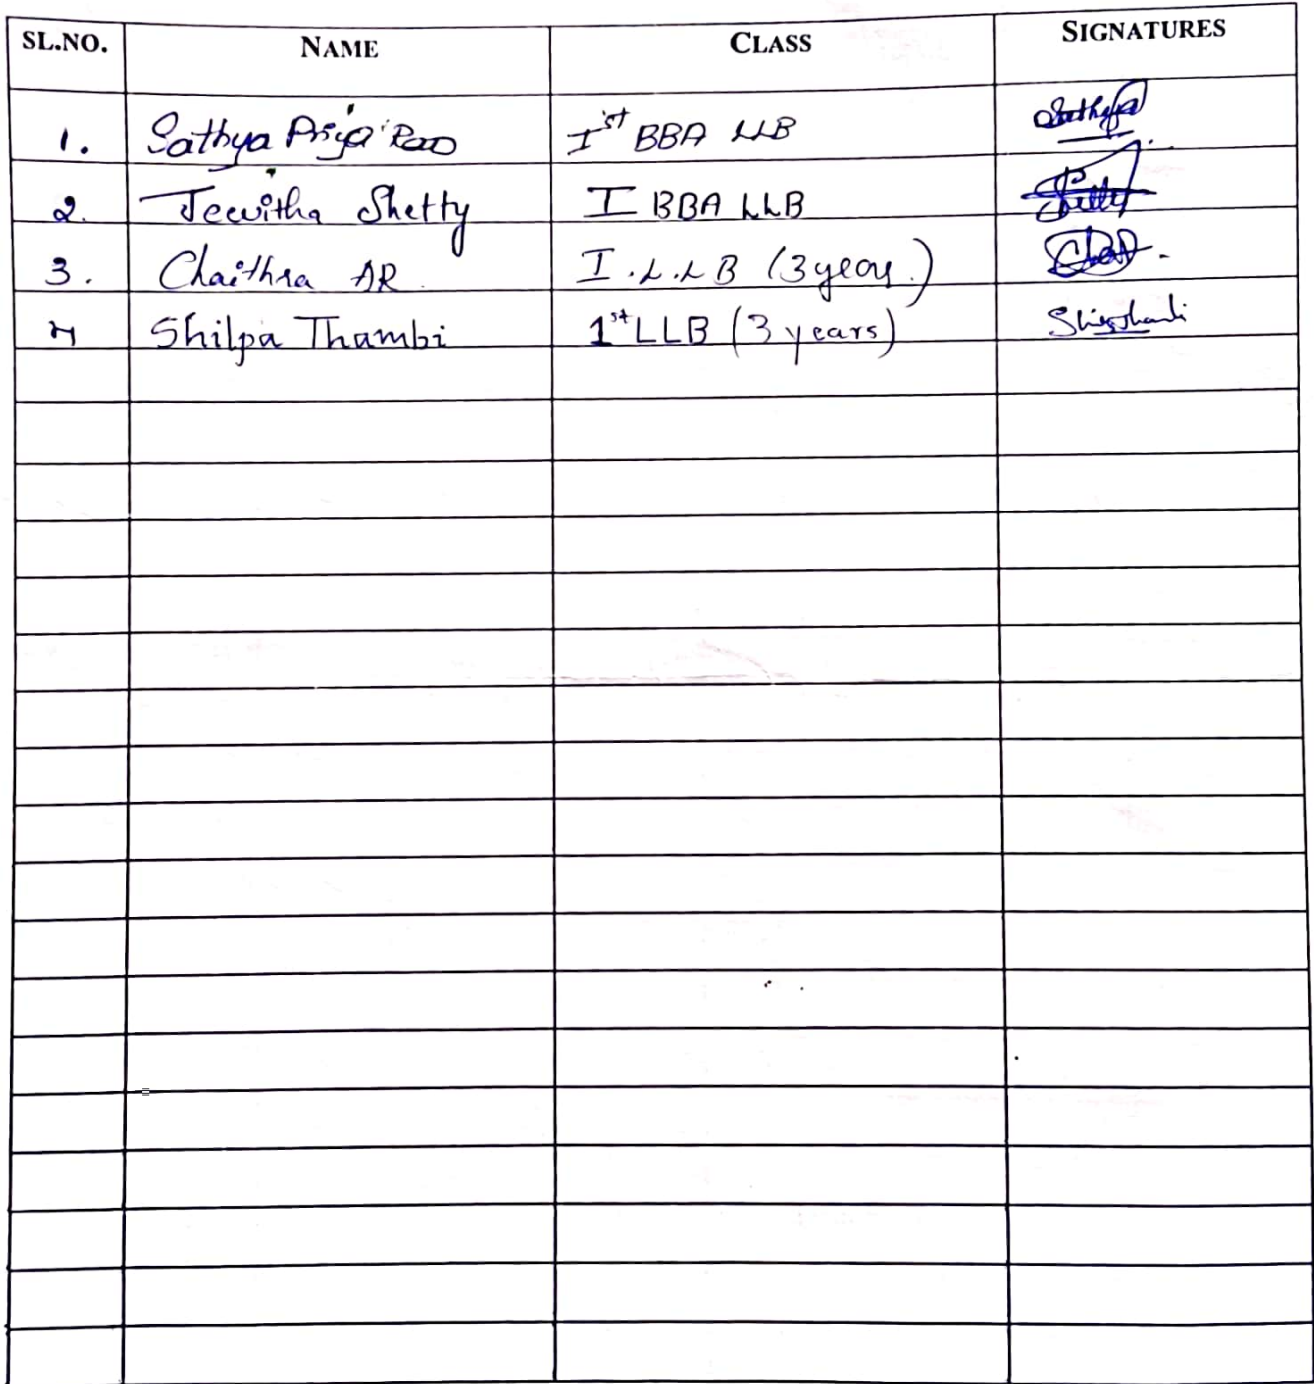 SL.NO. NAME CLASS SIGNATURES
1. Sathya Priya Rao Ist BBA LLB
2. Jewitha Shetty I BBA LLB Shetty
3. Chaithra AR I.L.L B (3 years.)
4 Shilpa Thambi 1st LLB (3 years)